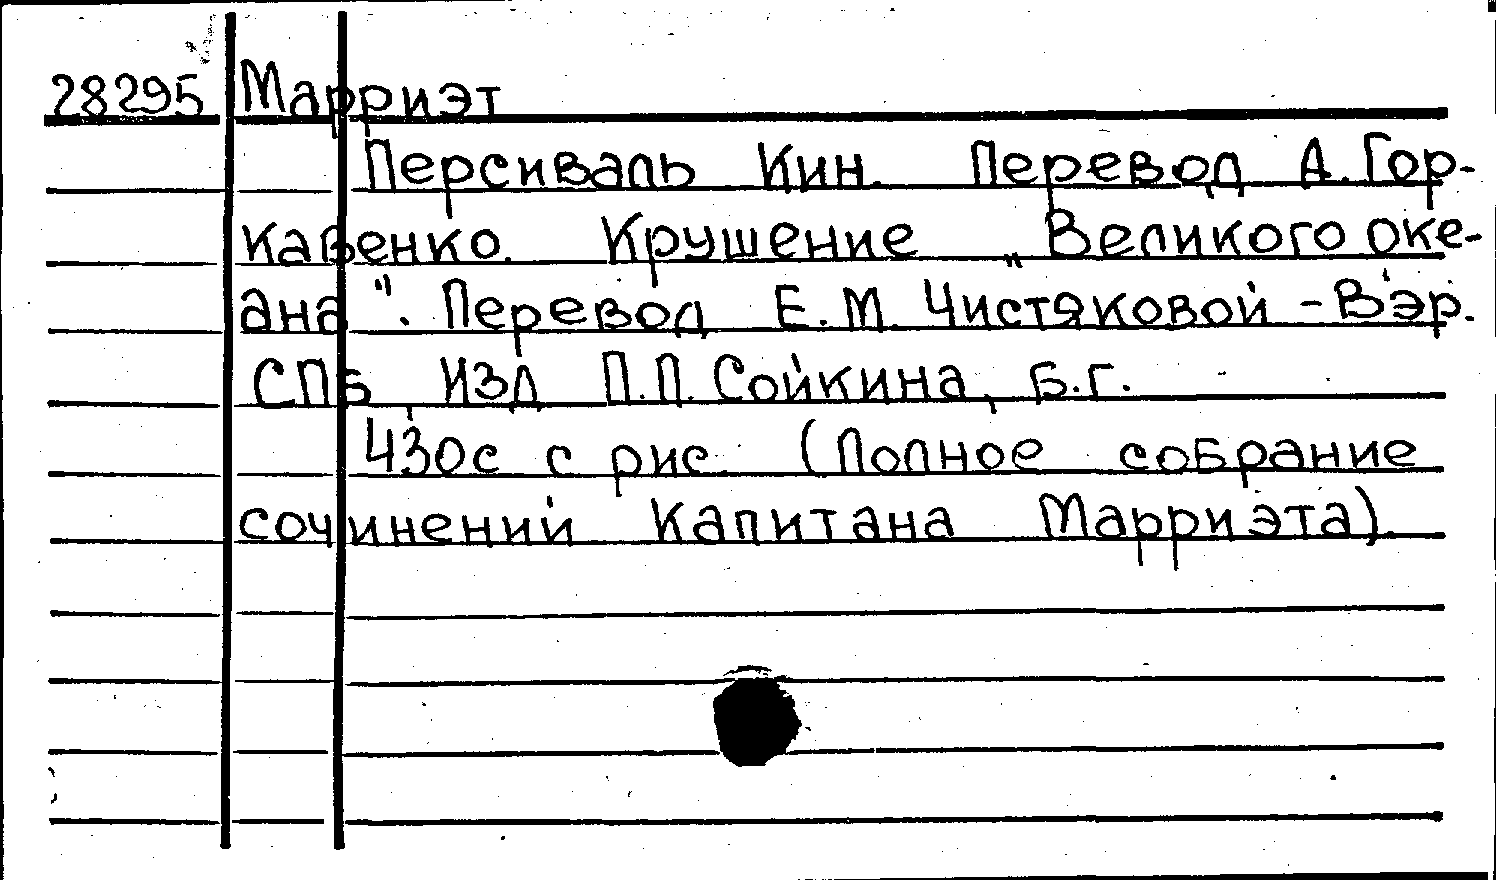 28295 Марриэт
Персиваль Кин. Перевод А. Гор-
кавенко. Крушение „Великого оке-
ана". Перевод Е. М. Чистяковой - Вэр.
СПБ Изд П.П. Сойкина, б.г.
430с с рис. (Полное собрание
сочинений капитана Марриэта).